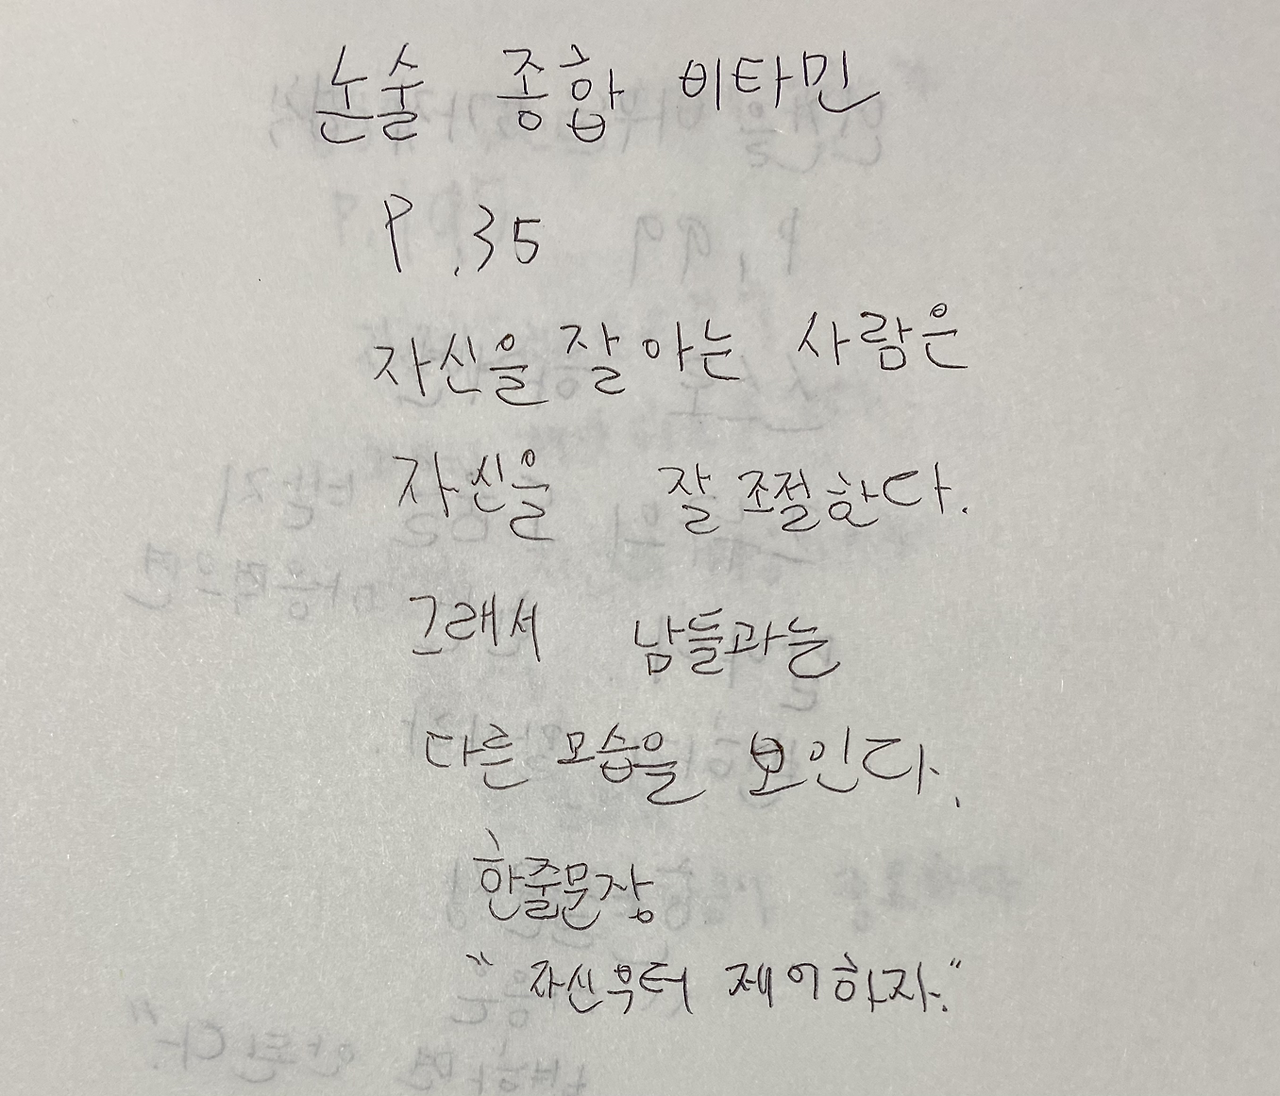 논술 종합 비타민
P.35
자신을 잘 아는 사람은
자신을 잘 조절한다.
그래서 남들과는
다른 모습을 보인다.
한줄문장
"자신부터 제어하자."